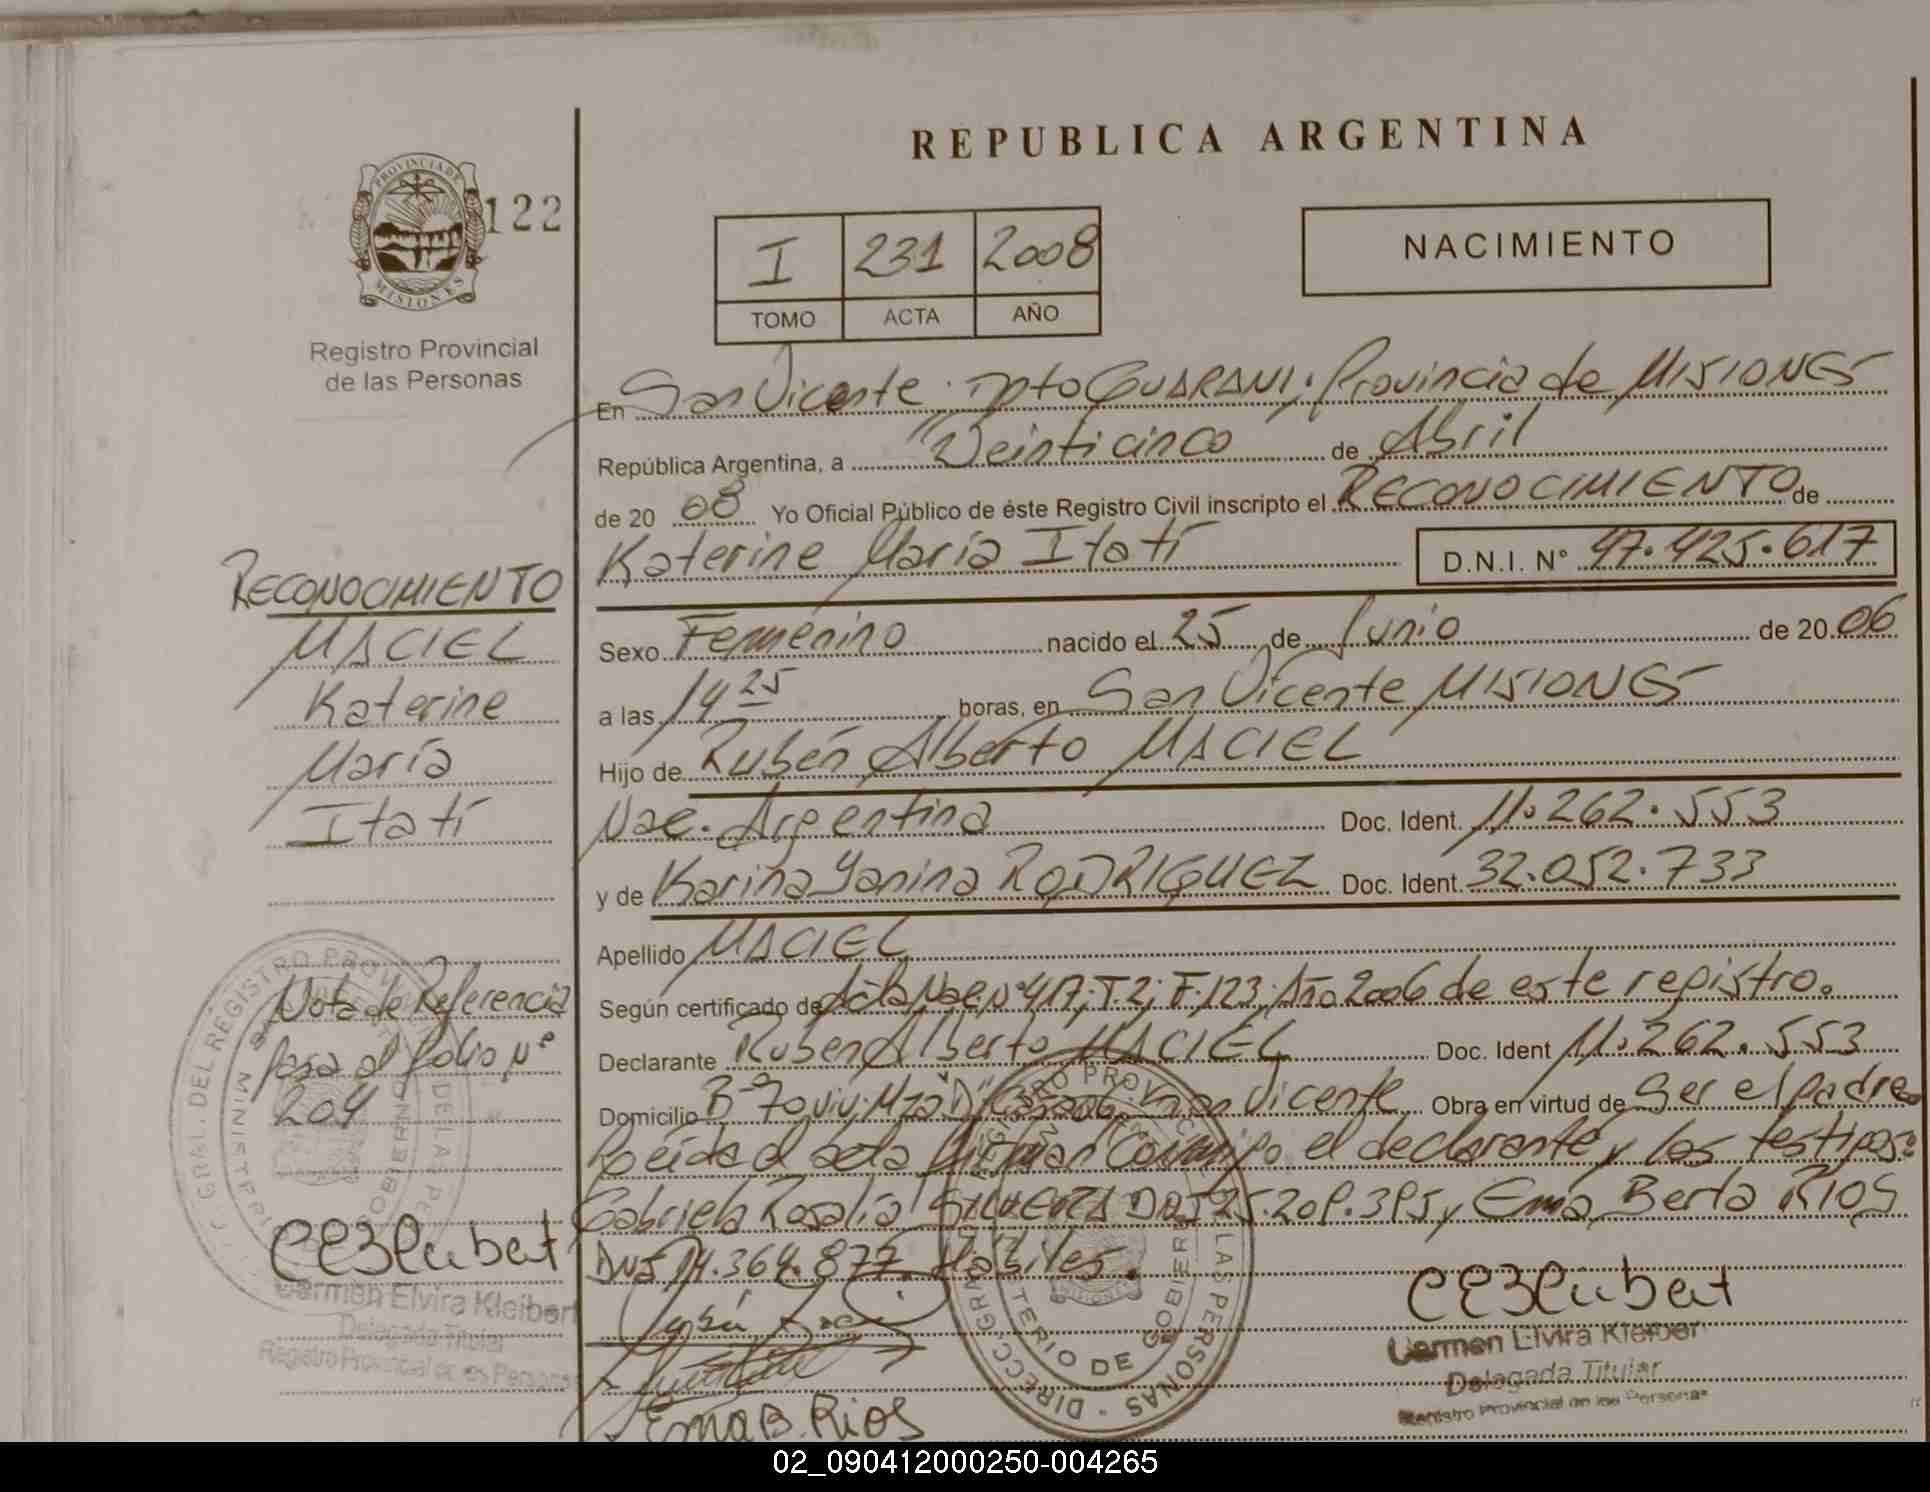 REPUBLICA ARGENTINA
PROVINCIA DE
MISIONES
122
Registro Provincial
de las Personas
I 231 2008
TOMO ACTA AÑO
NACIMIENTO
En San Vicente. Dpto GUARANI, Provincia de MISIONES
República Argentina, a Veinticinco de Abril
de 20 08 Yo Oficial Público de éste Registro Civil inscripto el RECONOCIMIENTO de
Katerine María Itatí D.N.I. N° 47.425.617
Sexo Femenino nacido el 25 de Junio de 20 06
a las 14 25 boras, en San Vicente MISIONES
Hijo de Rubén Alberto MACIEL
Nac. Argentina Doc. Ident. 11.262.553
y de Karina Yanina RODRIGUEZ Doc. Ident. 32.052.733
Apellido MACIEL
Según certificado de Acta Nac. Nº 417, T. 2, F. 123, Año 2006 de este registro.
Declarante Ruben Alberto MACIEL Doc. Ident 11.262.553
Domicilio B- 70 viv. Mza "D" San Vicente Obra en virtud de Ser el padre
Leída el acta firman conmigo el declarante y los testigos:
Gabriela Rosalia y Ema Berta RIOS
DNI 14.364.877. Hábiles.
Ema B. Rios
Carmen Elvira Kleiber
Delegada Titular
Registro Provincial de las Personas
RECONOCIMIENTO
MACIEL
Katerine
María
Itatí
Nota de Referencia
pasa al folio Nº
204
Carmen Elvira Kleibert
Delegada Titular
Registro Provincial de las Personas
02_090412000250-004265